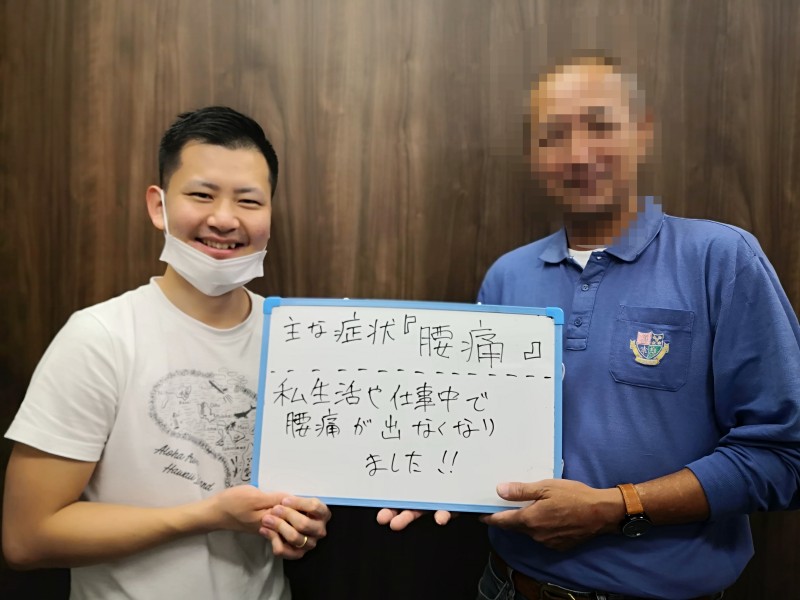 主な症状『腰痛』
私生活や仕事中で
腰痛が出なくなり
ました!!
Aloha